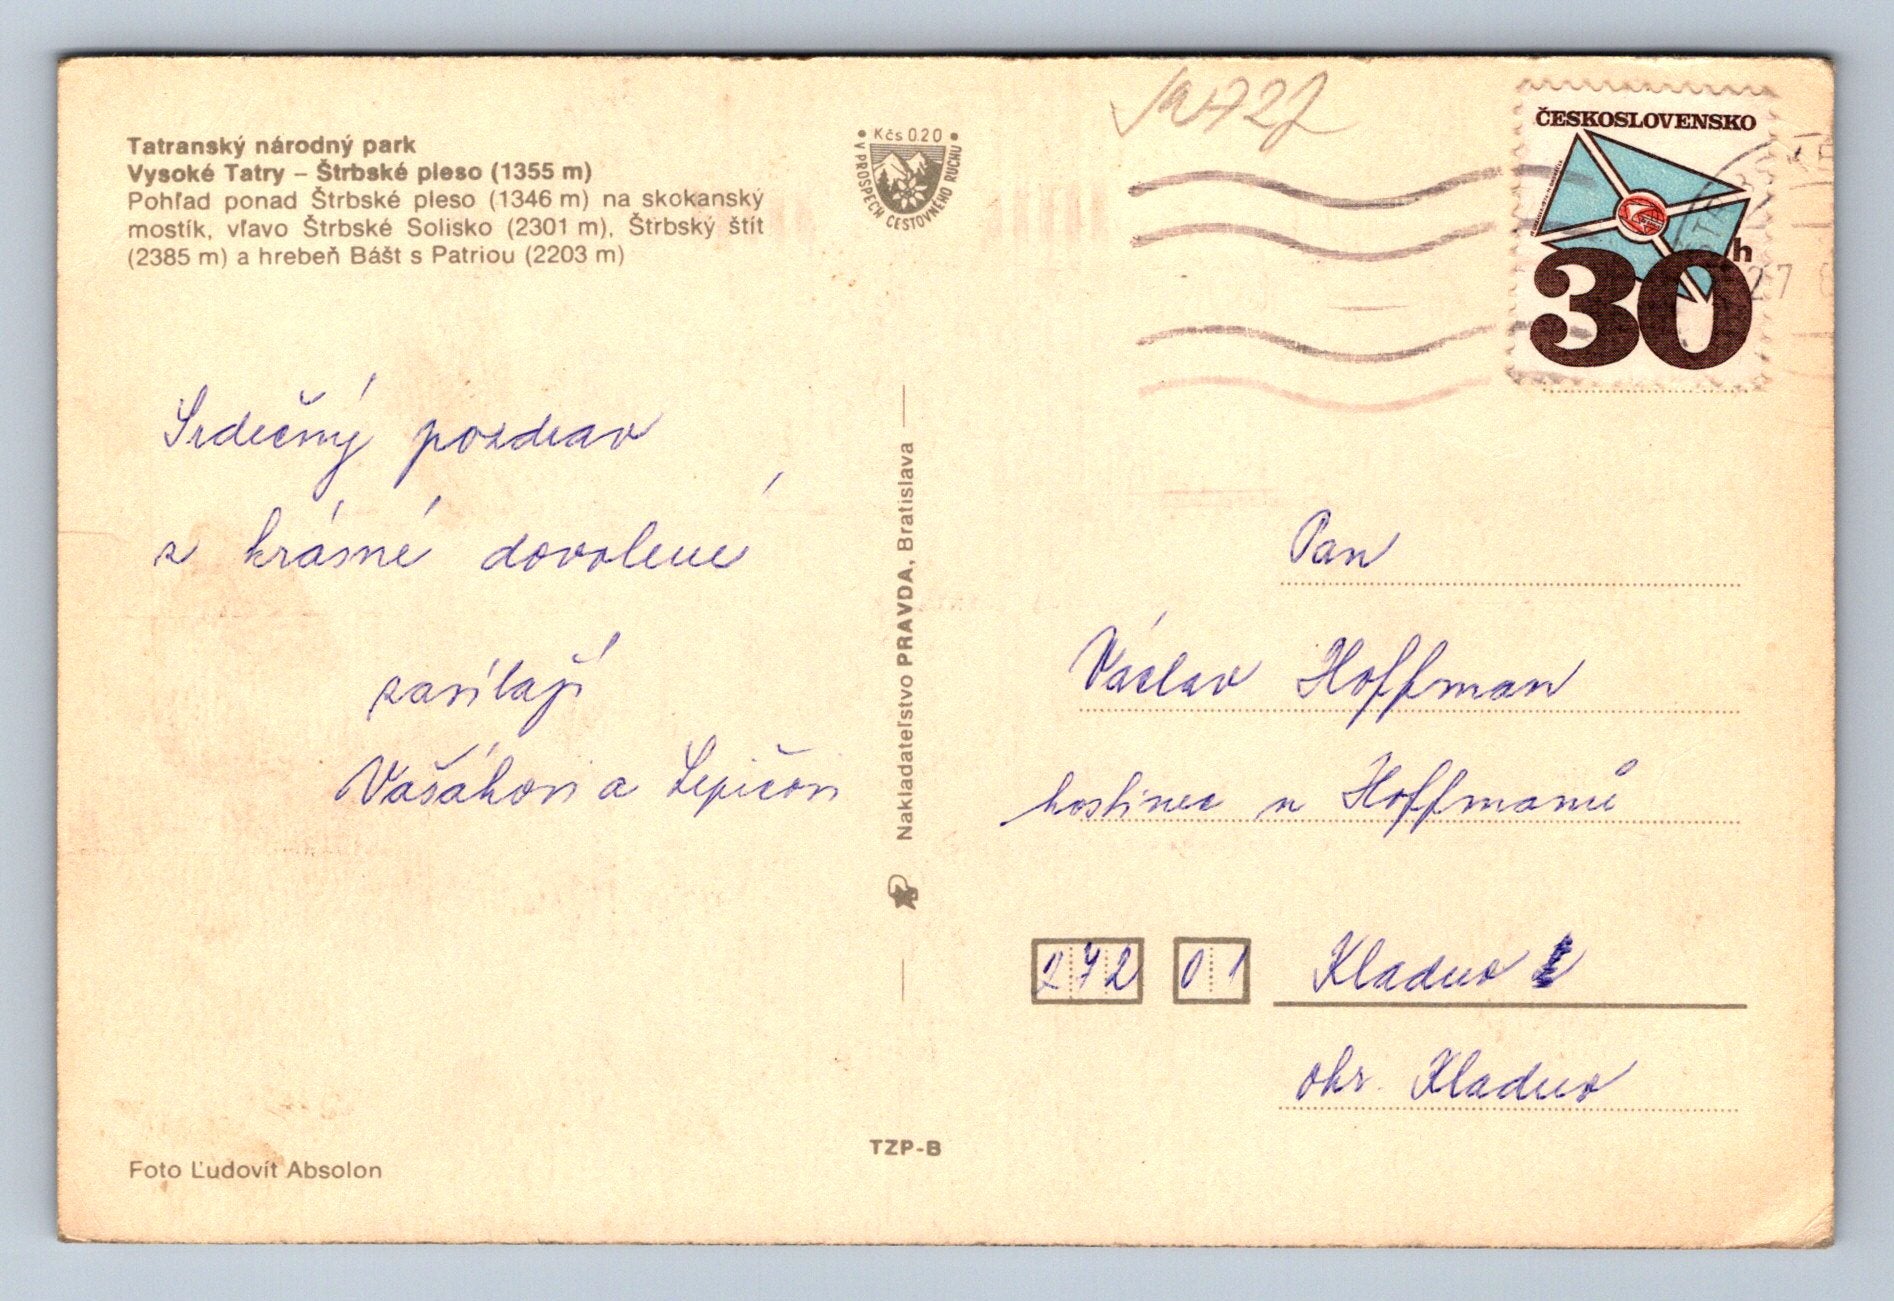 Tatranský národný park
Vysoké Tatry – Štrbské pleso (1355 m)
Pohľad ponad Štrbské pleso (1346 m) na skokanský
mostík, vľavo Štrbské Solisko (2301 m), Štrbský štít
(2385 m) a hrebeň Bášt s Patriou (2203 m)
• Kčs 0.20 •
V PROSPECH CESTOVNÉHO RUCHU
ČESKOSLOVENSKO
30 h
27
Srdečný pozdrav
z krásné dovolené
zasílají
Vašákovi a Lepičovi
Nakladateľstvo PRAVDA, Bratislava
Pan
Václav Hoffman
hostinec u Hoffmanů
272 01 Kladno
okr. Kladno
TZP-B
Foto Ľudovít Absolon